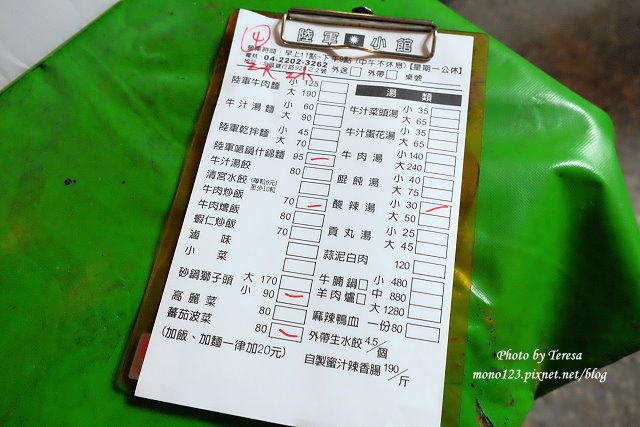 陸軍小館
營業時間：早上11點~下午9點(中午不休息)【星期一公休】
電話 04-2202-3262
外送 外帶 桌號
陸軍牛肉麵 小 125
大 190
牛汁湯麵 小 60
大 90
陸軍乾拌麵 小 45
大 70
陸軍嗆鍋什錦麵 95
牛汁湯餃 80
清宮水餃 (每粒6元) 至少10粒
牛肉炒飯 70
牛肉燴飯 80
蝦仁炒飯 70
滷味
小菜
砂鍋獅子頭 大 170
小 90
高麗菜 80
蕃茄波菜 80
(加飯、加麵一律加20元)
湯類
牛汁菜頭湯 小 35
大 65
牛汁蛋花湯 小 35
大 65
牛肉湯 小 140
大 240
餛飩湯 小 40
大 75
酸辣湯 小 30
大 50
貢丸湯 小 25
大 45
蒜泥白肉 120
牛腩鍋 小 480
羊肉爐 中 880
大 1280
麻辣鴨血 一份 80
外帶生水餃 4.5/個
自製蜜汁辣香腸 190/斤
Photo by Teresa
mono123.pixnet.net/blog